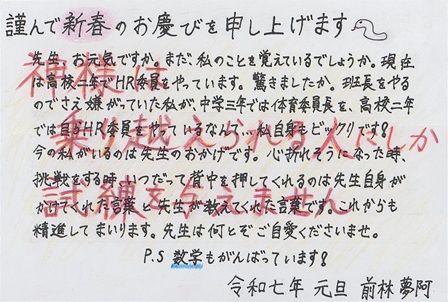 謹んで新春のお慶びを申し上げます
先生、お元気ですか。まだ、私のことを覚えているでしょうか。現在
は高校二年でHR委員をやっています。驚きましたか。班長をやる
のでさえ嫌がっていた私が、中学三年では体育委員長を、高校二年
では自らHR委員をやっているなんて…私自身もビックリです!
今の私がいるのは先生のおかげです。心折れそうになった時、
挑戦をする時、いつだって背中を押してくれるのは先生自身が
かけてくれた言葉と先生が教えてくれた言葉です。これからも
精進してまいります。先生は何とぞご自愛くださいませ。
P.S 数学もがんばっています!
令和七年 元旦 前林 夢阿
神様は
乗り越えられる人にしか
試練を与えません